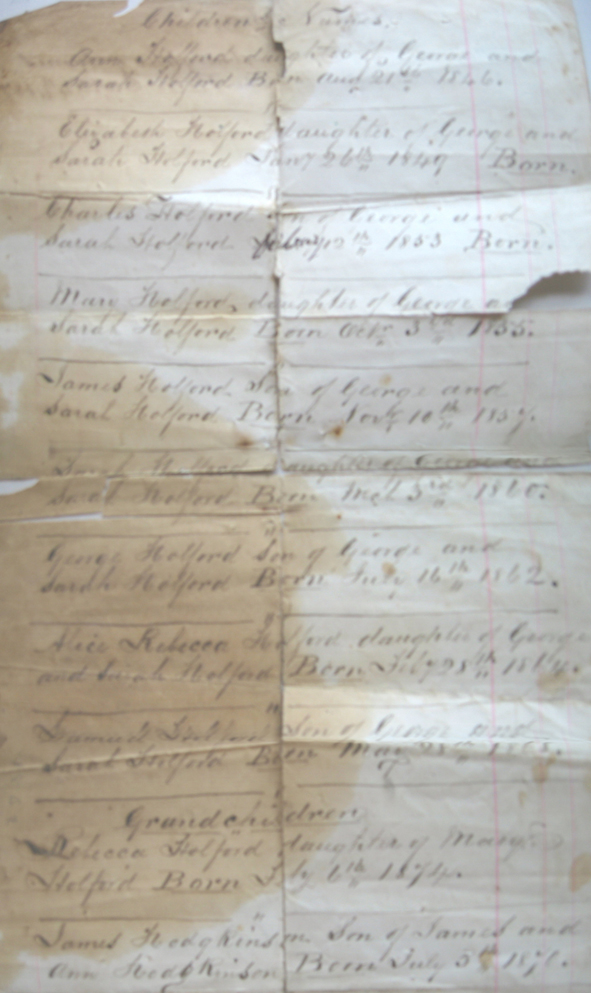 Children's Names.
Ann Holford daughter of George and
Sarah Holford Born Aug 21st 1846.
Elizabeth Holford daughter of George and
Sarah Holford Jany 26th 1849 Born.
Charles Holford son of George and
Sarah Holford 12th 1853 Born.
Mary Holford, daughter of George
Sarah Holford Born Octr 3rd 1855.
James Holford Son of George and
Sarah Holford Born 10th 1857.
Sarah Holford daughter of George and
Sarah Holford Born Mch 3rd 1860.
George Holford Son of George and
Sarah Holford Born July 16th 1862.
Alice Rebecca Holford daughter of George
and Sarah Holford Born Feby 28th
Samuel Holford Son of George and
Sarah Holford Born May
Grandchildren
Rebecca Holford daughter of Mary
Holford Born July 6th 1874.
James Hodgkinson Son of James and
Ann Hodgkinson Born July 5th